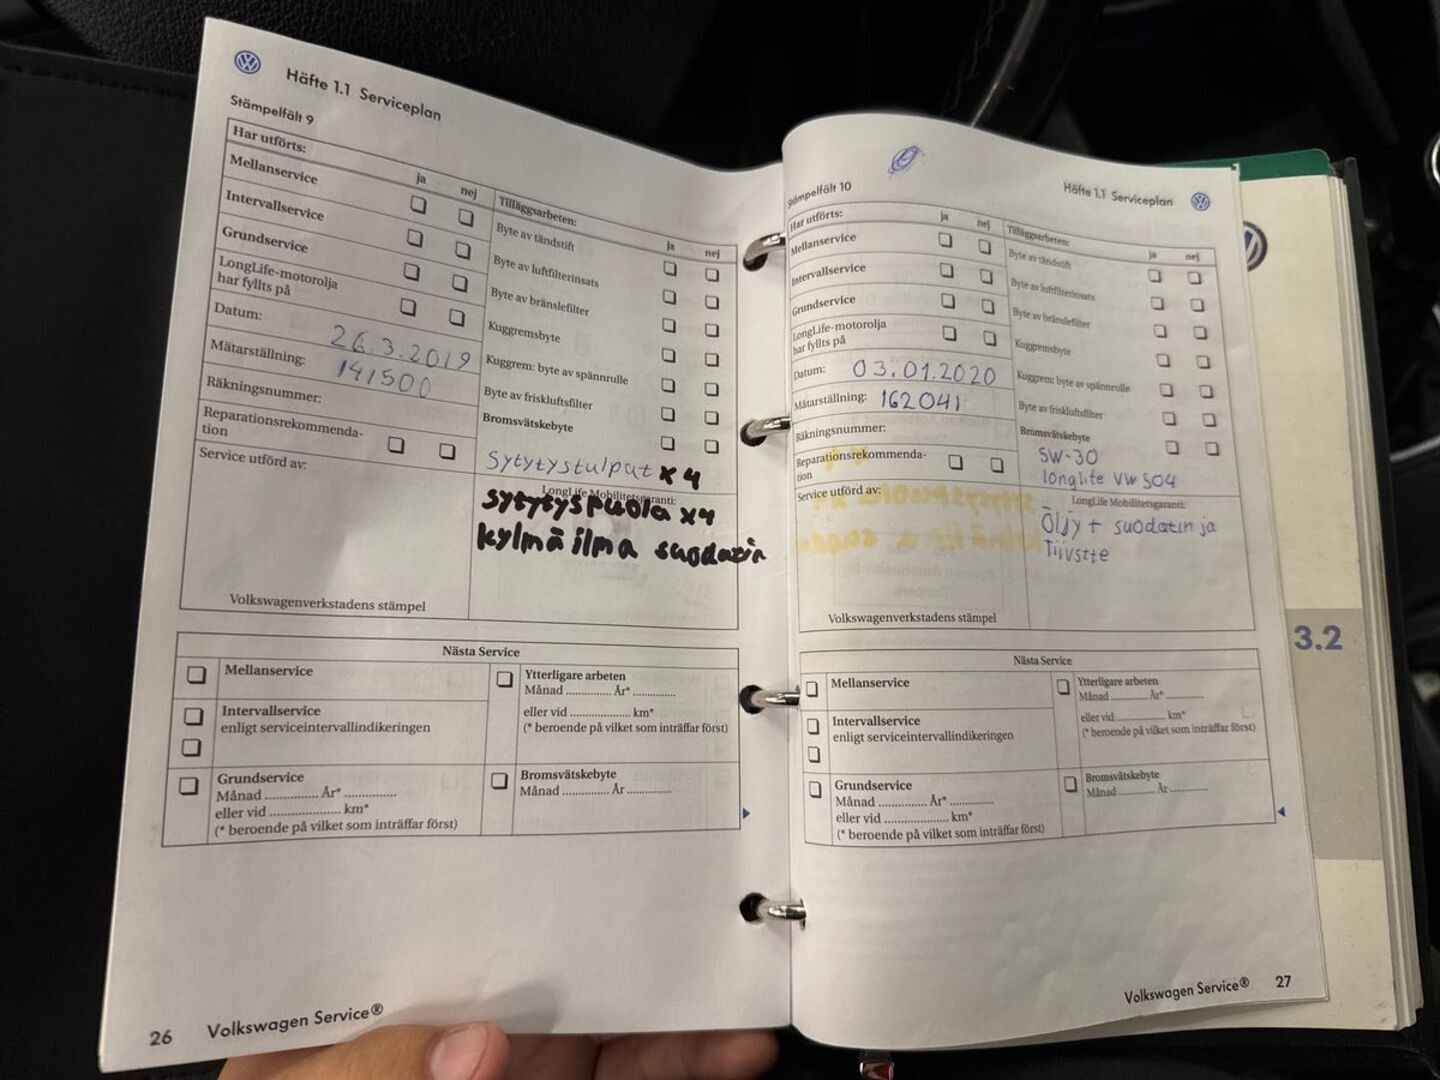 Häfte 1.1 Serviceplan
Stämpelfält 9
Har utförts:
ja nej
Mellanservice
Intervallservice
Grundservice
LongLife-motorolja
har fyllts på
Datum: 26.3.2019
Mätarställning: 141500
Räkningsnummer:
Reparationsrekommenda-
tion
Service utförd av:
Volkswagenverkstadens stämpel
Tilläggsarbeten:
ja nej
Byte av tändstift
Byte av luftfilterinsats
Byte av bränslefilter
Kuggremsbyte
Kuggrem: byte av spännrulle
Byte av friskluftsfilter
Bromsvätskebyte
Sytytystulpat x 4
LongLife Mobilitetsgaranti:
sytytyspuola x4
kylmä ilma suodatin
Nästa Service
Mellanservice
Intervallservice
enligt serviceintervallindikeringen
Grundservice
Månad .............. År* ..............
eller vid .................... km*
(* beroende på vilket som inträffar först)
Ytterligare arbeten
Månad .............. År* ..............
eller vid .................... km*
(* beroende på vilket som inträffar först)
Bromsvätskebyte
Månad .............. År ..............
26 Volkswagen Service®
Häfte 1.1 Serviceplan
Stämpelfält 10
Har utförts:
ja nej
Mellanservice
Intervallservice
Grundservice
LongLife-motorolja
har fyllts på
Datum: 03.01.2020
Mätarställning: 162041
Räkningsnummer:
Reparationsrekommenda-
tion
Service utförd av:
Volkswagenverkstadens stämpel
Tilläggsarbeten:
ja nej
Byte av tändstift
Byte av luftfilterinsats
Byte av bränslefilter
Kuggremsbyte
Kuggrem: byte av spännrulle
Byte av friskluftsfilter
Bromsvätskebyte
5W-30
longlite VW 504
LongLife Mobilitetsgaranti:
Öljy + suodatin ja
Tiivstte
Nästa Service
Mellanservice
Intervallservice
enligt serviceintervallindikeringen
Grundservice
Månad .............. År* ..............
eller vid .................... km*
(* beroende på vilket som inträffar först)
Ytterligare arbeten
Månad .............. År* ..............
eller vid .................... km*
(* beroende på vilket som inträffar först)
Bromsvätskebyte
Månad .............. År ..............
Volkswagen Service® 27
3.2